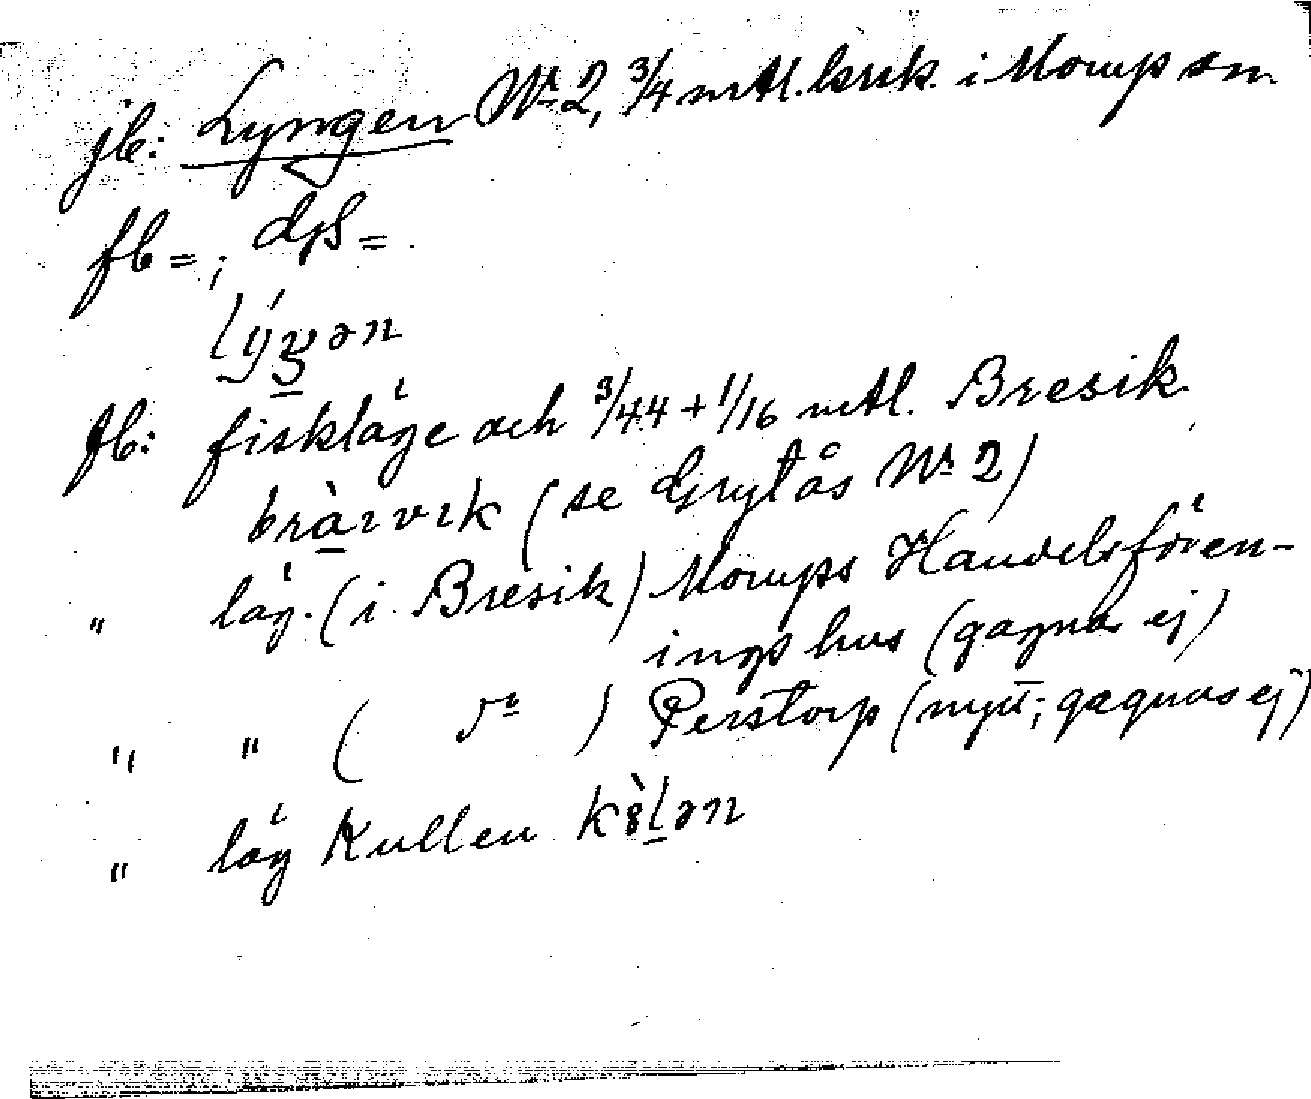 jb: Lyngen No 2, 3/4 mtl. krik. i Morup sn
fb = ; dgS =
lýŋən
fb: fiskläge och 3/44 + 1/16 mtl. Bresik
bràɪvɪk (se Grytås No 2)
" läg. (i Bresik) Morups Handelsfören-
ings hus (gagnas ej)
" " ( do ) Perstorp (nytt; gagnas ej)
" läg Kullen kɵ̀lən